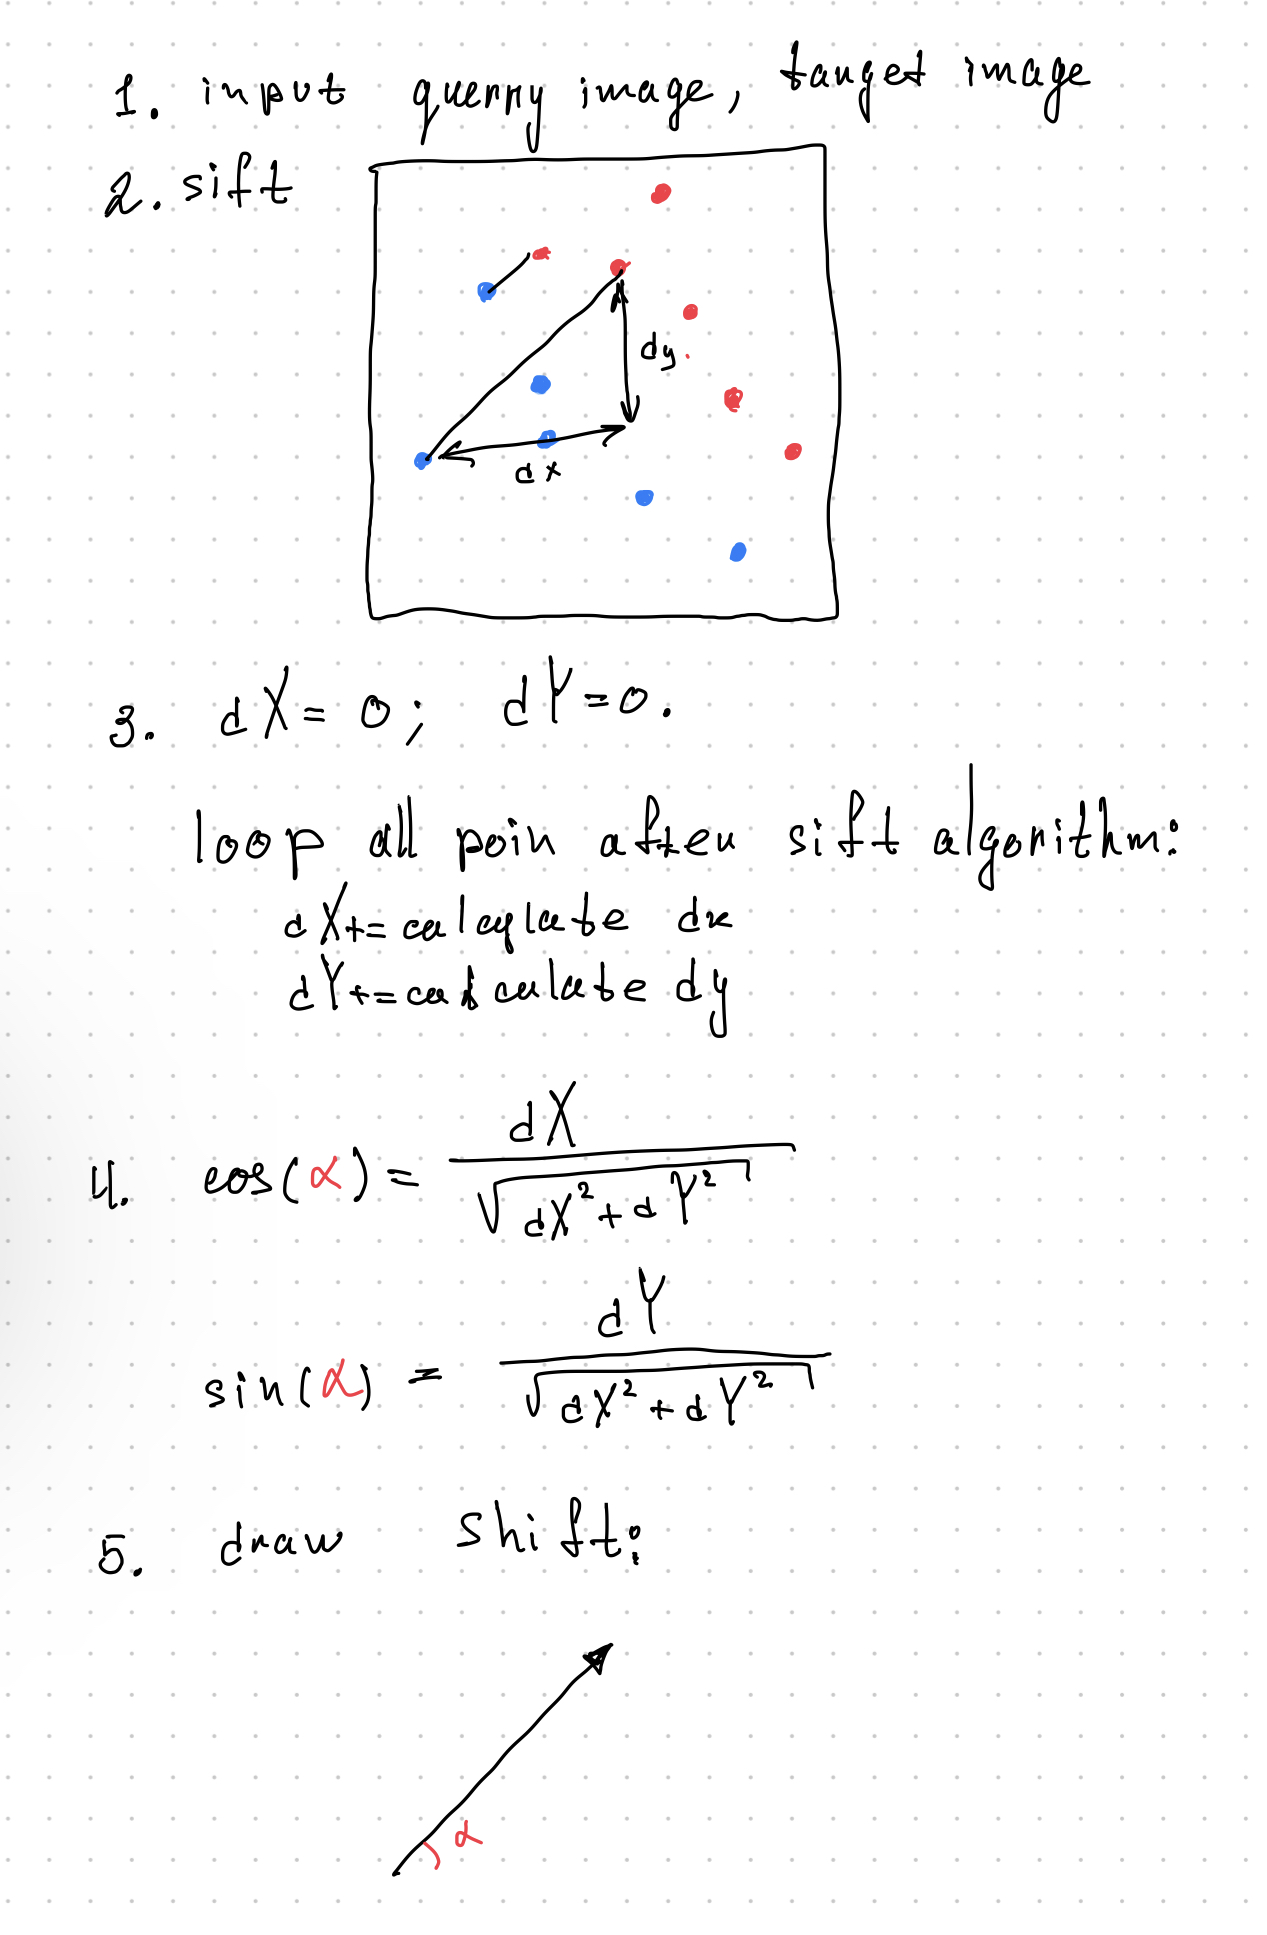 1. input querry image, target image
2. sift
dy
dx
3. dX = 0; dY = 0.
loop all poin after sift algorithm:
dX += calculate dx
dY += calculate dy
4. cos(α) = dX / √(dX² + dY²)
sin(α) = dY / √(dX² + dY²)
5. draw shift:
α